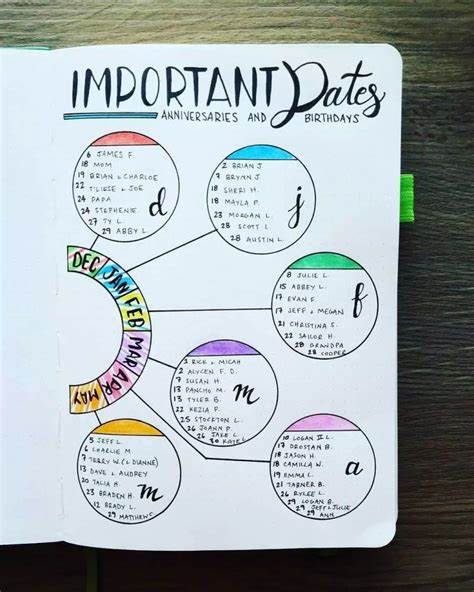 IMPORTANT Dates
ANNIVERSARIES AND BIRTHDAYS
6 JAMES F.
18 MOM
19 BRIAN & CHARLOE
22 T'LIESE & JOE
24 DADA
24 STEPHENIE
27 TY L.
29 ABBY L.
d
2 BRIAN J
7 BRYNN J
18 SHERI H.
18 MAYLA P.
23 MORGAN L.
28 SCOTT L.
28 AUSTIN L.
j
DEC
JAN
FEB
MAR
APR
MAY
8 JULIE L.
15 ABBEY L.
17 EVAN F
17 JEFF & MEGAN
21 CHRISTINA S.
22 SAILOR H
28 GRANDPA
28 COOPER
f
3 RICK & MICAH
2 ALYCEN F. D.
7 SUSAN H.
13 PANCHO M.
13 TYLER B.
22 KEZIA F.
25 STOCKTON L.
26 JOANN P.
26 JAKE L.
30 KATE L
m
5 JEFF L.
6 CHARLIE M.
7 TERRY W. (& DIANNE)
13 DAVE & AUDREY
20 TALIA H
23 BRADEN H
12 BRADY L.
29 MATTHEW S
m
10 LOGAN II L.
17 DROSTAN B.
18 JASON H.
18 CAMILLA W.
19 EMMA L.
21 TARNER B.
26 RYLEE L.
29 LOGAN B.
29 JEFF & JULIE
29 ANN
a